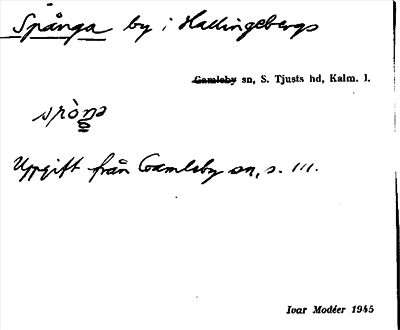 Spånga by i Hallingebergs
Gamleby sn, S. Tjusts hd, Kalm. l.
Uppgift från Gamleby sn, s. 111.
Ivar Modéer 1945